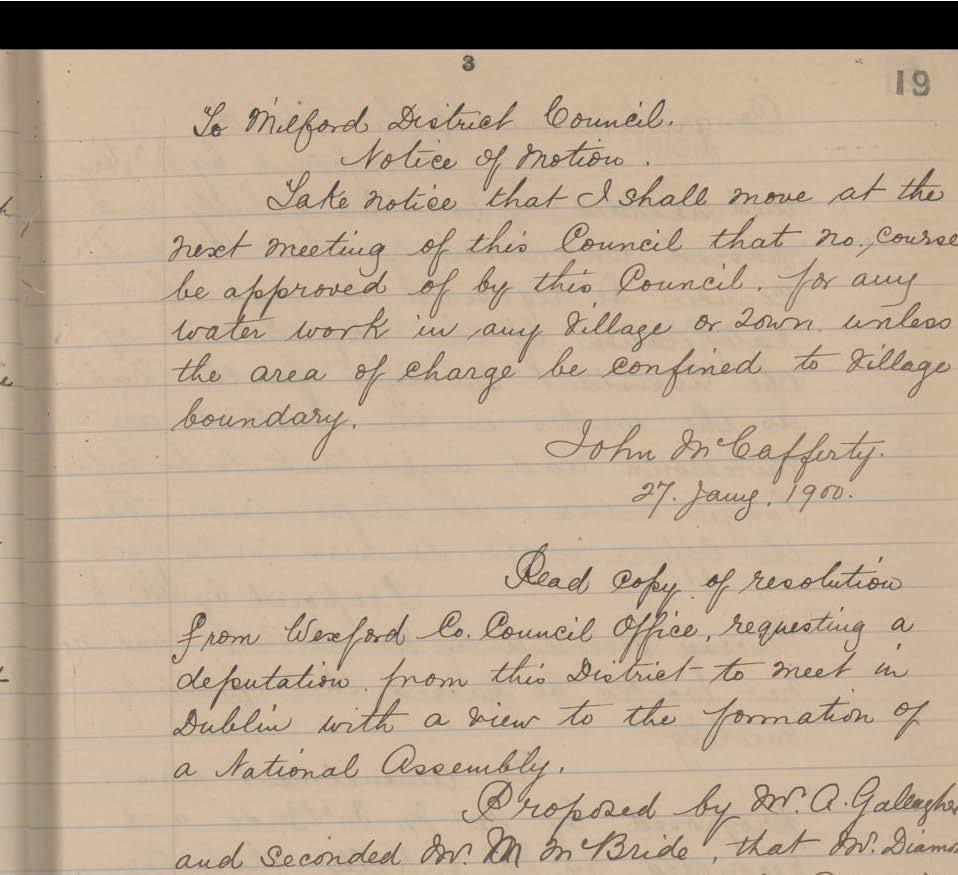 3
19
To Milford District Council.
Notice of Motion.
Take notice that I shall move at the
next meeting of this Council that no course
be approved of by this Council, for any
water work in any Village or Town unless
the area of charge be confined to Village
boundary.
John McCafferty.
27. Jany. 1900.
Read copy of resolution
from Wexford Co. Council Office, requesting a
deputation from this District to meet in
Dublin with a view to the formation of
a National Assembly.
Proposed by Mr. A. Gallagher
and seconded Mr. M McBride, that Mr. Diamo